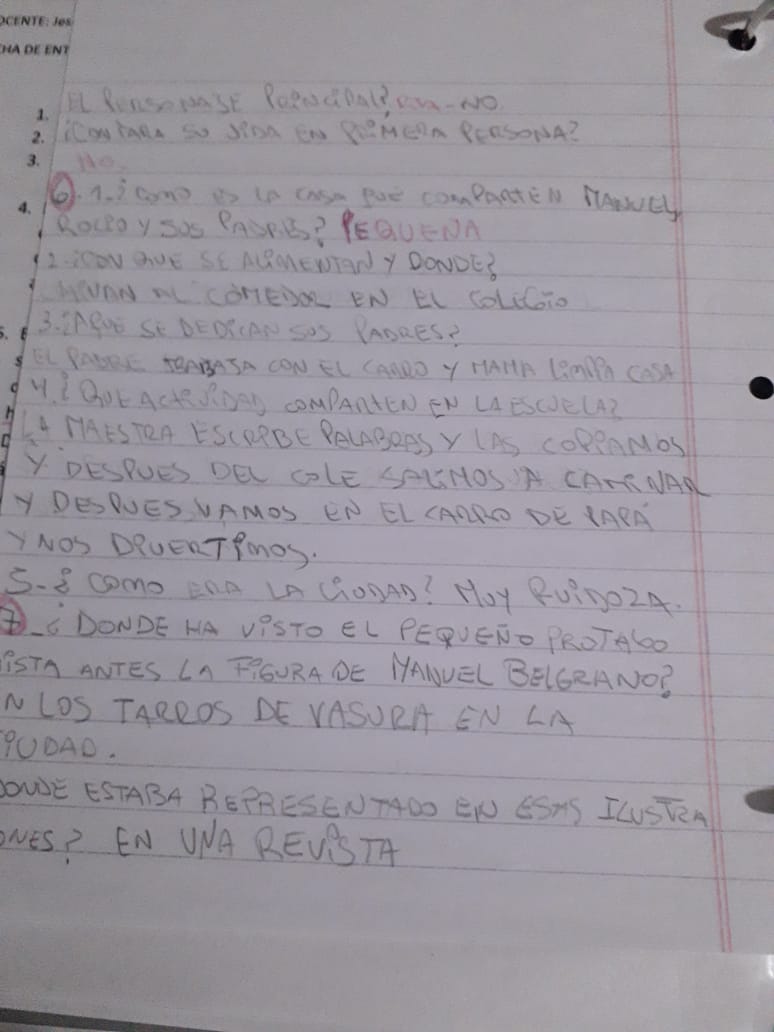 OCENTE: Jes
HA DE ENT
1.
EL PERSONAJE PRINCIPAL? - NO.
2. ¿CONTARA SU VIDA EN PRIMERA PERSONA?
3. NO.
6. 1. ¿COMO ES LA CASA QUE COMPARTEN MANUEL,
4.
ROCIO Y SUS PADRES? PEQUEÑA
2-¿CON QUE SE ALIMENTAN Y DONDE?
VAN AL COMEDOR EN EL COLEGIO
5.
3. ¿A QUE SE DEDICAN SUS PADRES?
EL PADRE TRABAJA CON EL CARRO Y MAMA LIMPIA CASA
4. ¿QUE ACTIVIDAD COMPARTEN EN LA ESCUELA?
LA MAESTRA ESCRIBE PALABRAS Y LAS COPIAMOS
Y DESPUES DEL COLE SALIMOS A CAMINAR
Y DESPUES VAMOS EN EL CARRO DE PAPÁ
Y NOS DIVERTIMOS.
5-¿COMO ERA LA CIUDAD? MUY RUIDOZA.
7-¿DONDE HA VISTO EL PEQUEÑO PROTAGO
ISTA ANTES LA FIGURA DE MANUEL BELGRANO?
N LOS TARROS DE VASURA EN LA
IUDAD.
DONDE ESTABA REPRESENTADO EN ESAS ILUSTRA
ONES? EN UNA REVISTA